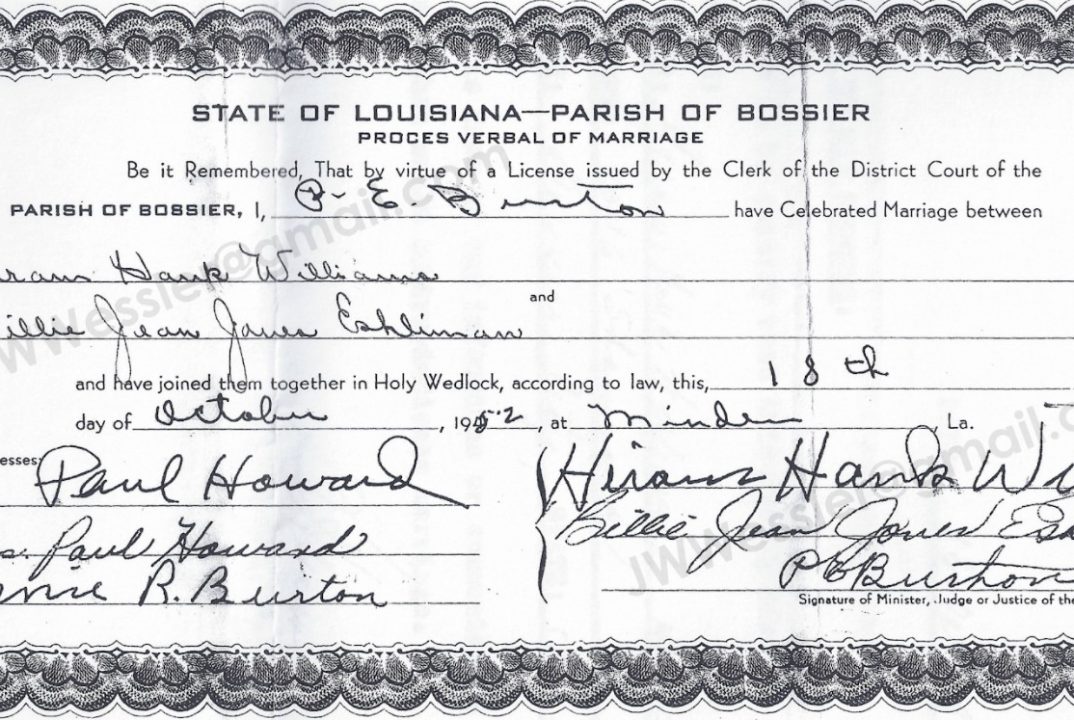 STATE OF LOUISIANA—PARISH OF BOSSIER
PROCES VERBAL OF MARRIAGE
Be it Remembered, That by virtue of a License issued by the Clerk of the District Court of the
PARISH OF BOSSIER, I, P. E. Burton have Celebrated Marriage between
ram Hank Williams
and
illie Jean Jones Eshliman
and have joined them together in Holy Wedlock, according to law, this, 18th
day of October, 1952, at Minden, La.
esses:
Paul Howard
Hiram Hank Wi
s. Paul Howard
Billie Jean Jones Es
nnie R. Burton
P E Burton
Signature of Minister, Judge or Justice of the
JWWessler@gmail.com
JWWessler@gmail.c